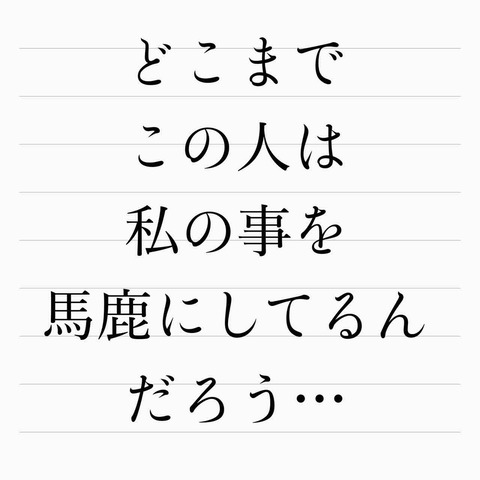 どこまで
この人は
私の事を
馬鹿にしてるん
だろう…